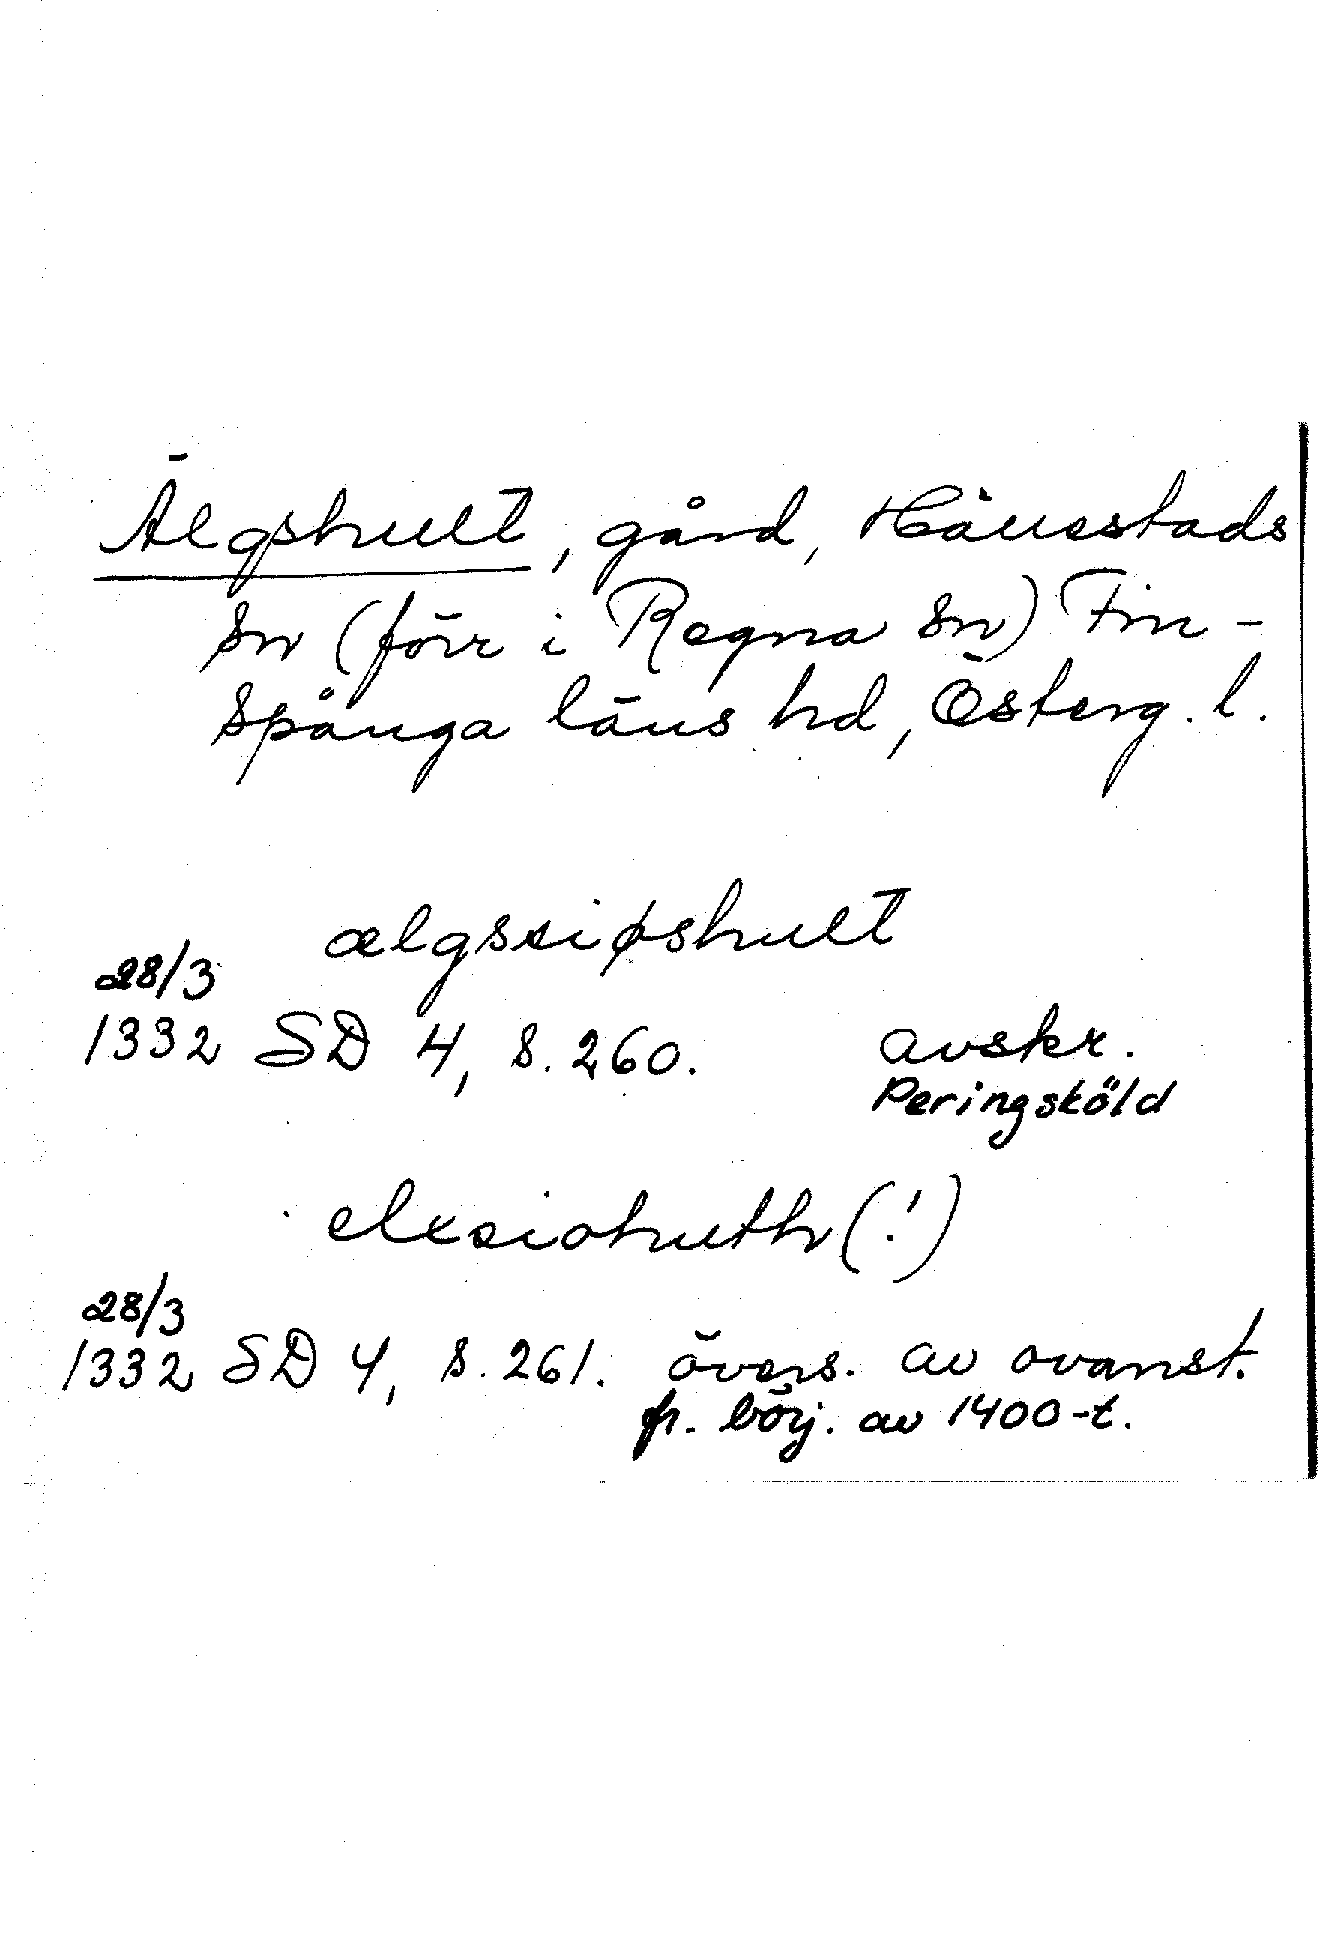 Älgshult, gård, Hävestads
sn (förr i Regna sn) Fin-
spånga läns hd, Österg. l.
ælgssiøshult
28/3
1332 SD 4, s. 260. avskr.
Peringsköld
elxsiohuth (!)
28/3
1332 SD 4, s. 261. övers. av ovanst.
fr. börj. av 1400-t.